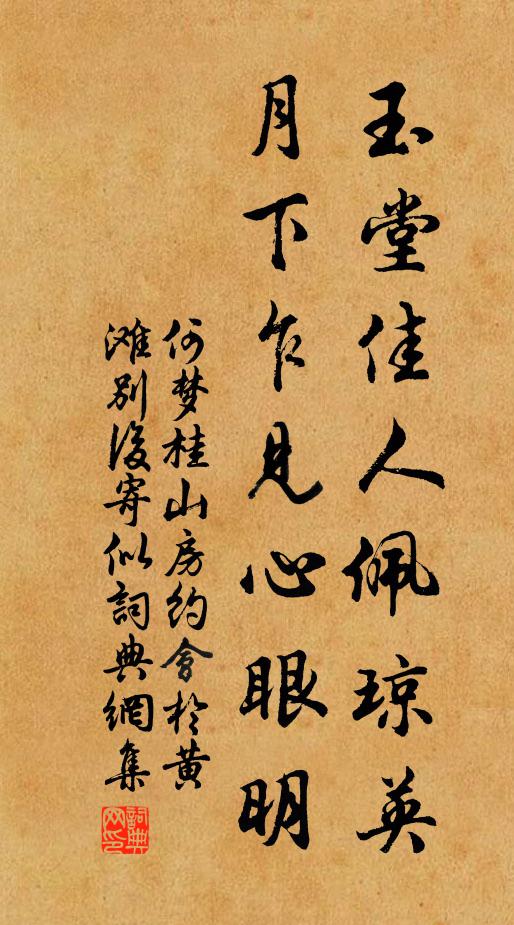 玉堂佳人佩琼英
月下乍见心眼明
何梦桂山房约会於黄
滩别後寄似詞典網集
詞典网印